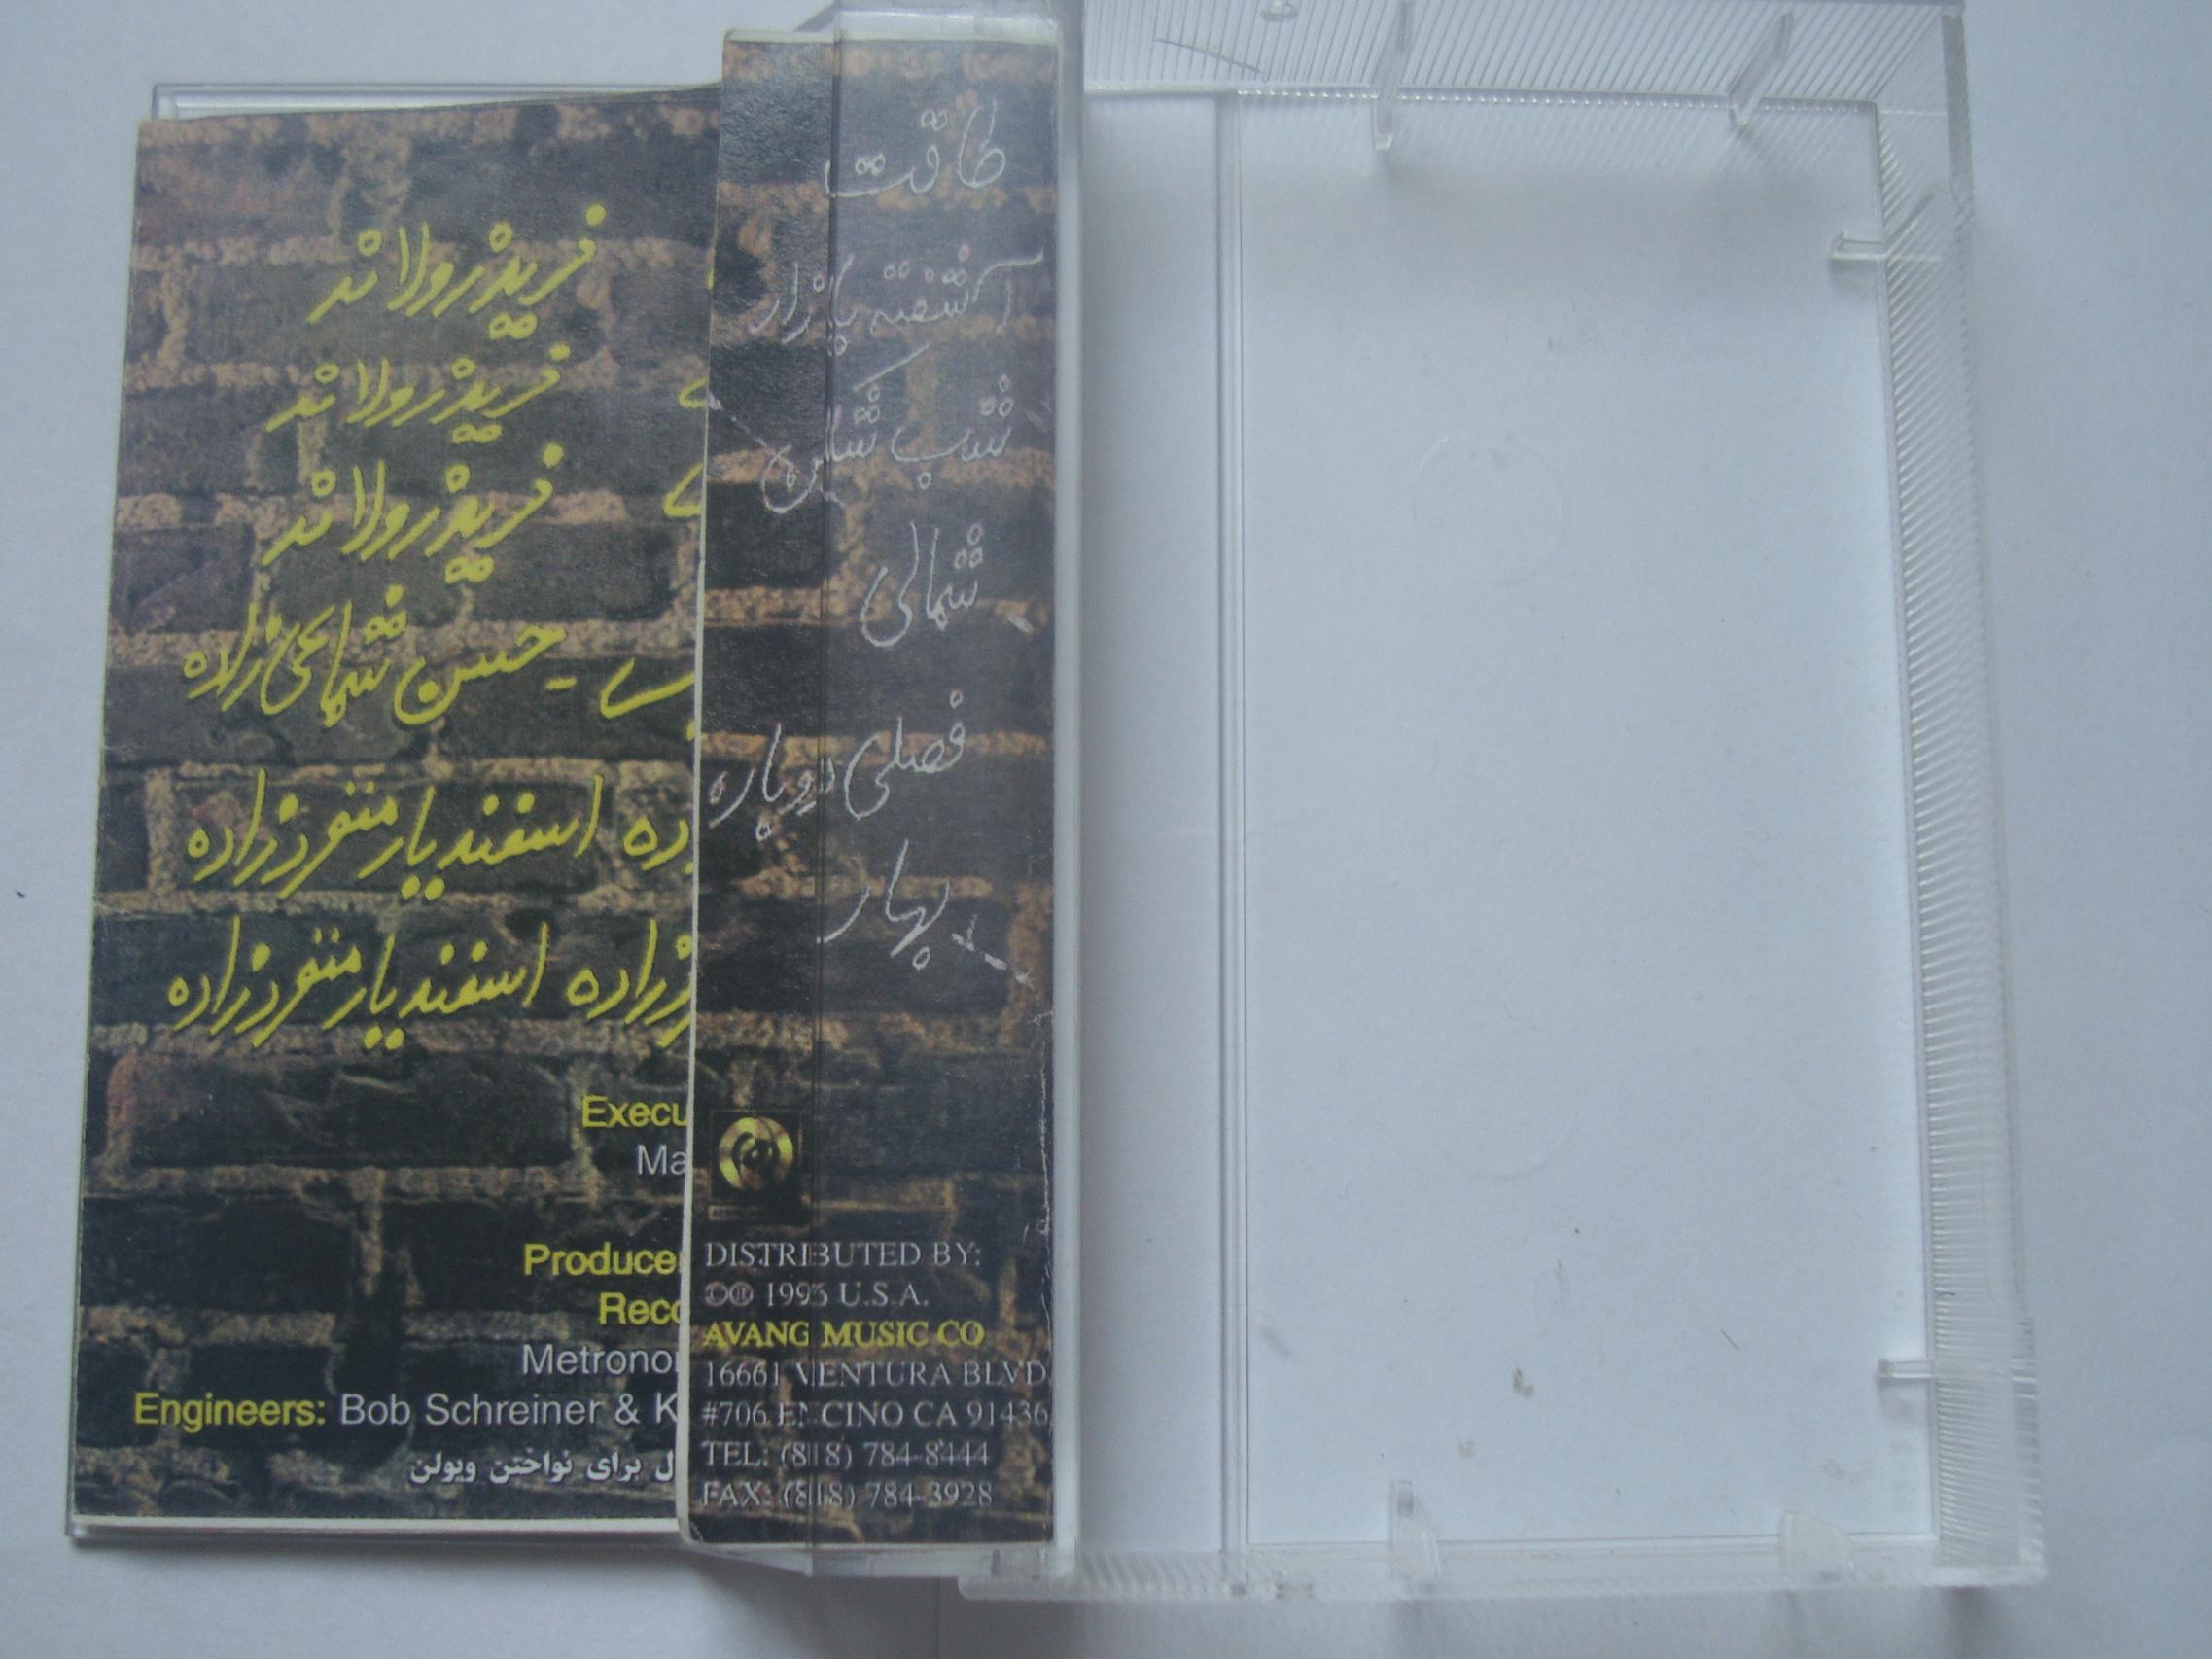 فرید زولاند
فرید زولاند
فرید زولاند
حسن شماعی زاده
ده اسفندیار منفردزاده
زاده اسفندیار منفردزاده
Execu
Ma
Produce
Reco
Metrono
Engineers: Bob Schreiner & K
ل برای نواختن ویولن
طاقت
آشفته بازار
شب شکن
شمالی
فصلی دوباره
بهار
DISTRIBUTED BY:
©℗ 1995 U.S.A.
AVANG MUSIC CO
16661 VENTURA BLVD
#706 ENCINO CA 91436
TEL: (818) 784-8444
FAX: (818) 784-3928